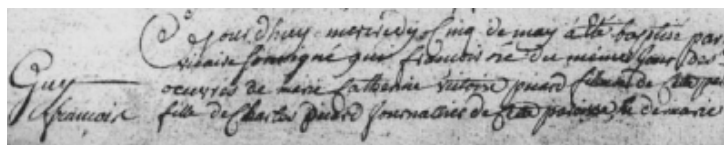 Ce jourd'huy mercredy cinq de may a été baptisé par
vicaire soussigné guy françois né du même jour des
Guy
oeuvres de marie Catherine victoire puard fille de cette
françois
fille de Charles puard Journallier de cette paroisse, et de marie